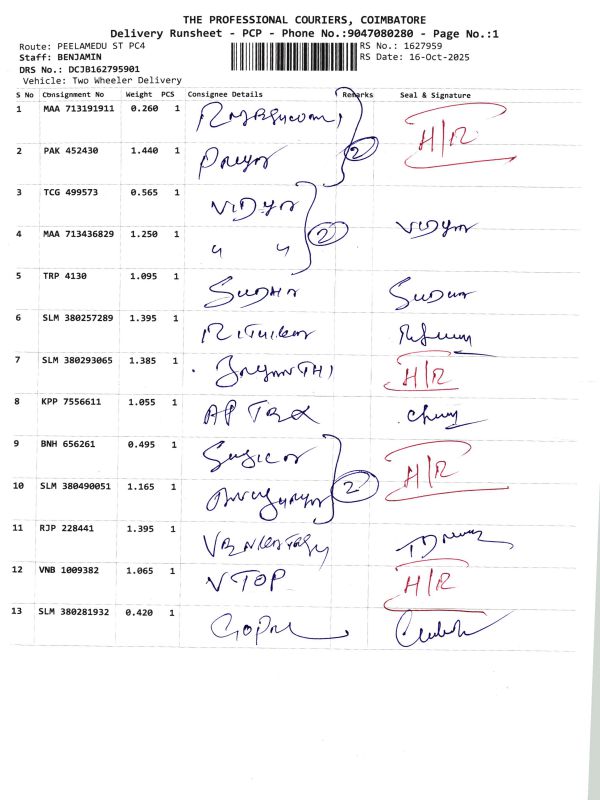 THE PROFESSIONAL COURIERS, COIMBATORE
Delivery Runsheet - PCP - Phone No.:9047080280 - Page No.:1
Route: PEELAMEDU ST PC4 RS No.: 1627959
Staff: BENJAMIN RS Date: 16-Oct-2025
DRS No.: DCJB162795901
Vehicle: Two Wheeler Delivery
S No Consignment No Weight PCS Consignee Details Remarks Seal & Signature
1 MAA 713191911 0.260 1 H/R
2 PAK 452430 1.440 1 Priya 2
3 TCG 499573 0.565 1 VIDYA
4 MAA 713436829 1.250 1 " " 2 VIDYA
5 TRP 4130 1.095 1 SUDHA SUDHA
6 SLM 380257289 1.395 1
7 SLM 380293065 1.385 1 JAYANTHI H/R
8 KPP 7556611 1.055 1
9 BNH 656261 0.495 1 H/R
10 SLM 380490051 1.165 1 2
11 RJP 228441 1.395 1
12 VNB 1009382 1.065 1 VTOP H/R
13 SLM 380281932 0.420 1 GOPAL